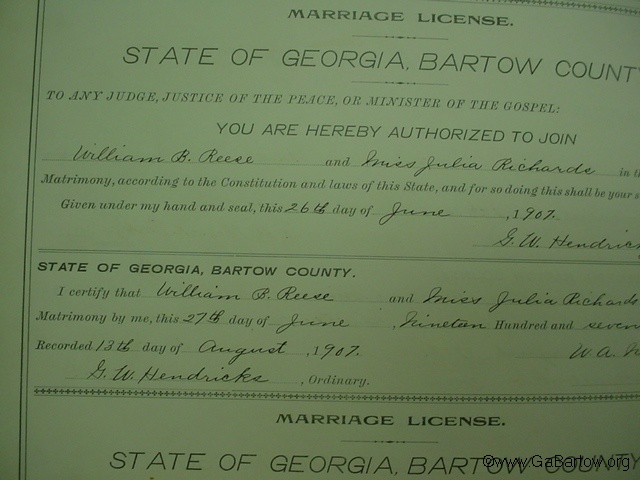 MARRIAGE LICENSE.
STATE OF GEORGIA, BARTOW COUNTY
TO ANY JUDGE, JUSTICE OF THE PEACE, OR MINISTER OF THE GOSPEL:
YOU ARE HEREBY AUTHORIZED TO JOIN
William B. Reese and Miss Julia Richards in th
Matrimony, according to the Constitution and laws of this State, and for so doing this shall be your s
Given under my hand and seal, this 26th day of June, 1907.
G. W. Hendrick
STATE OF GEORGIA, BARTOW COUNTY.
I certify that William B. Reese and Miss Julia Richards
Matrimony by me, this 27th day of June, Nineteen Hundred and seven
Recorded 13th day of August, 1907. W. A.
G. W. Hendricks, Ordinary.
MARRIAGE LICENSE.
STATE OF GEORGIA, BARTOW COUNTY
©www.GaBartow.org